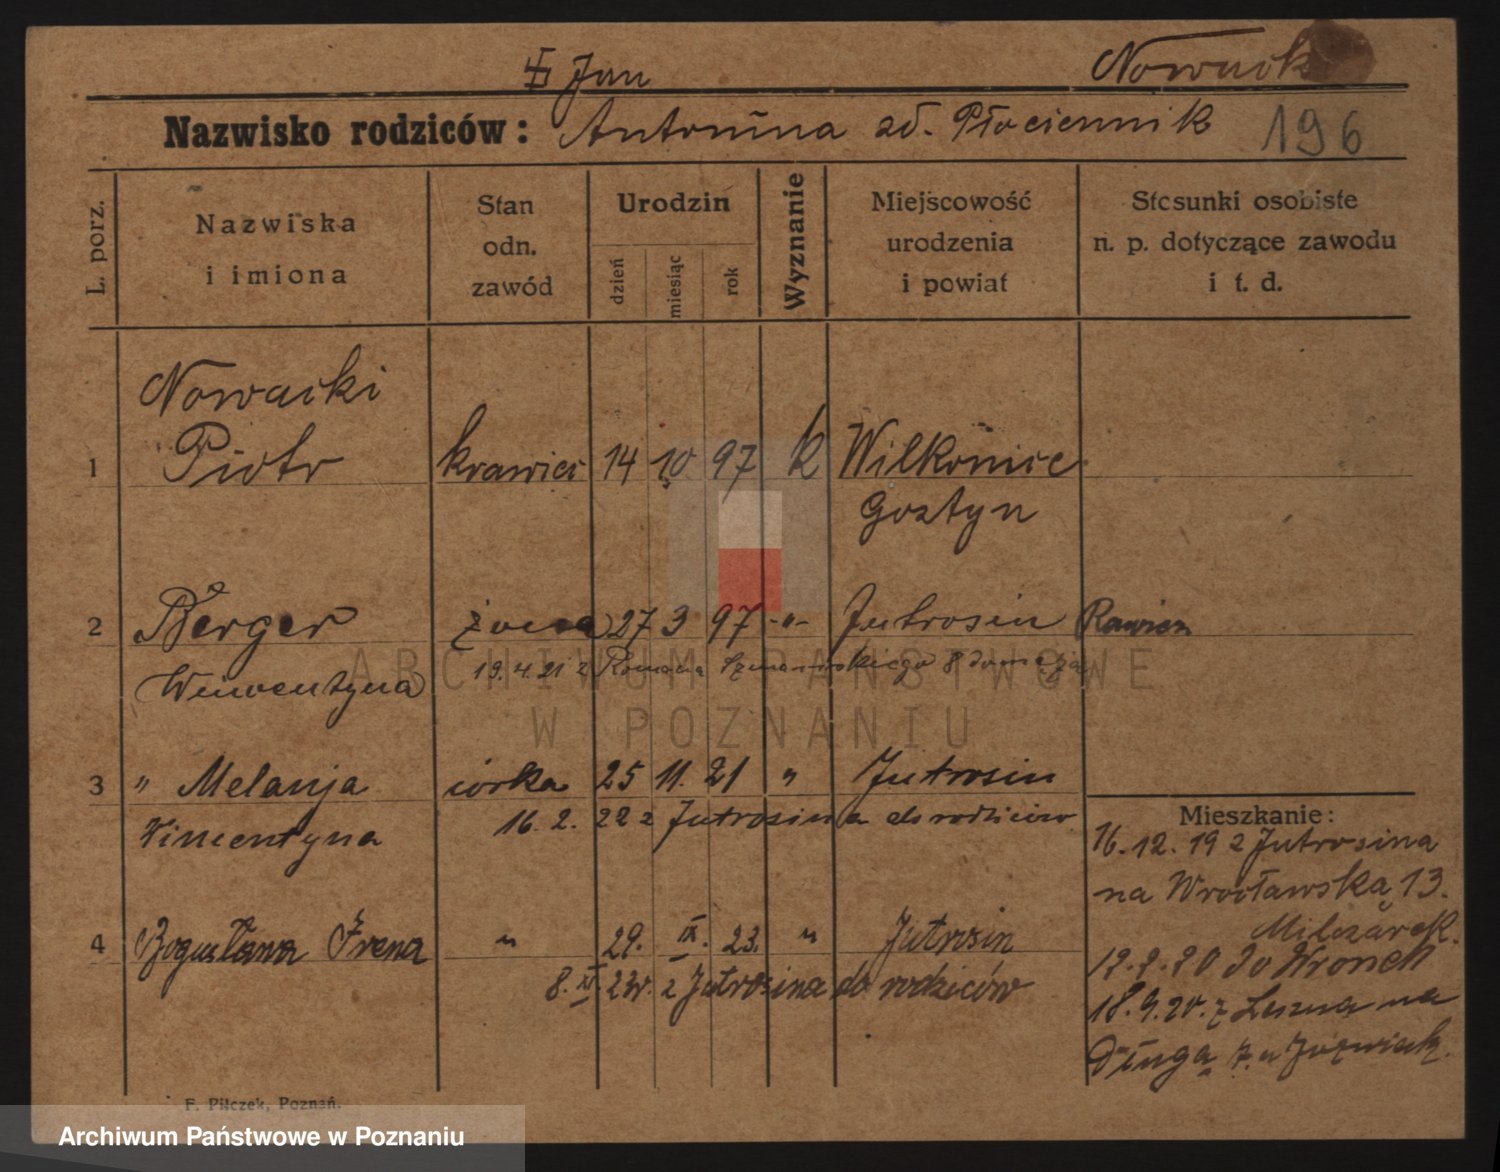 Jan Nowack
Nazwisko rodziców: Antonina zd. Płociennik 196
L. porz.
Nazwiska i imiona
Stan odn. zawód
Urodzin
dzień miesiąc rok
Wyznanie
Miejscowość urodzenia i powiat
Stosunki osobiste n. p. dotyczące zawodu i t. d.
Nowacki
1 Piotr krawiec 14 10 97 k Wilkonice
Gostyn
2 Berger żona 27 3 97 -"- Jutrosin Rawicz
19.4.21 z Romana 8 do męża
Winwentyna
3 " Melanja córka 25 11. 21 " Jutrosin
16. 2. 22 z Jutrosina do rodziców
Vincentyna
4 Bogusława Irena " 29. IX. 23. " Jutrosin
8. XI 23r. z Jutrosina do rodziców
Mieszkanie:
16.12.19 z Jutrosina
na Wrocławską 13.
Milczarek.
12.2.20 do Wronek
18.9.20. z Leszna na
Długą 7. u Jóżwiak.
F. Pilczek, Poznań.
ARCHIWUM PAŃSTWOWE
W POZNANIU
Archiwum Państwowe w Poznaniu